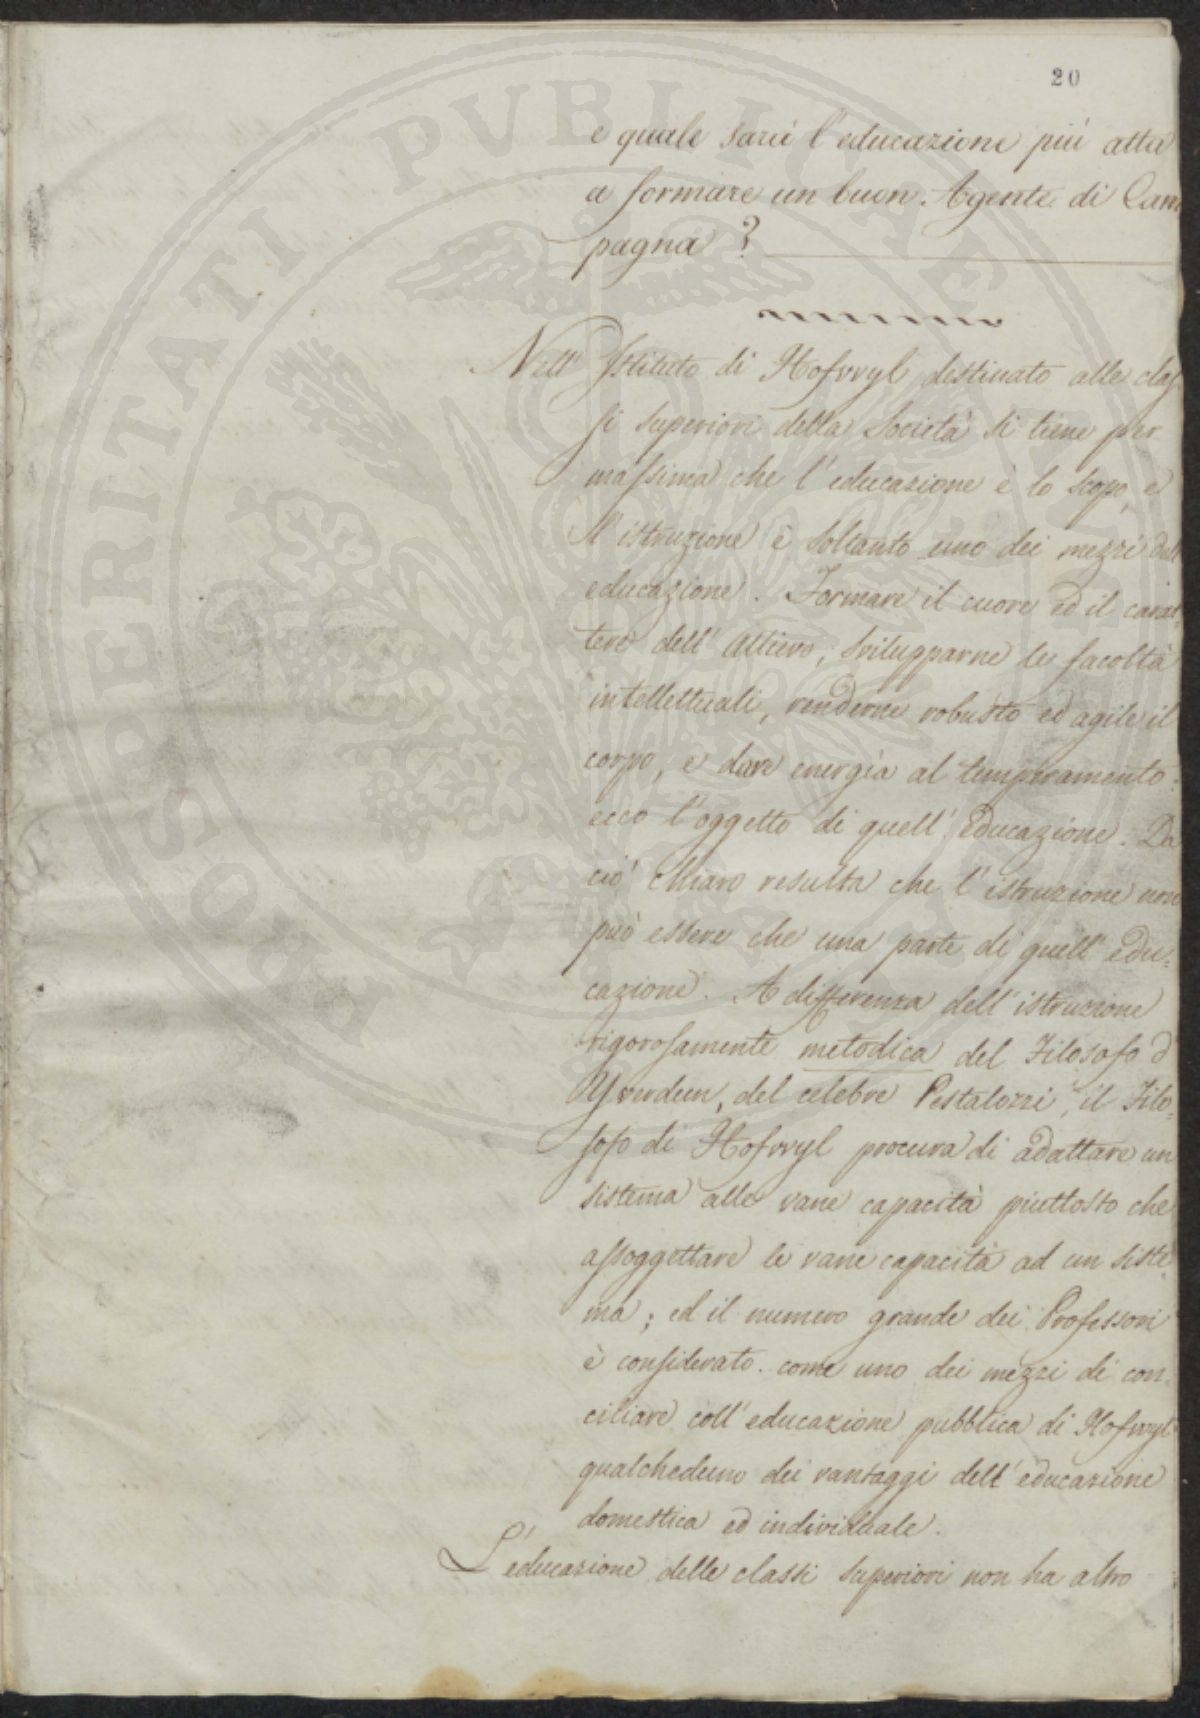 20
e quale sarà l'educazione più atta
a formare un buon Agente di Cam
pagna?
Nell' Istituto di Hofwyl destinato alle clas-
si superiori della Società si tiene per
massima che l'educazione è lo scopo, e
l'istruzione è soltanto uno dei mezzi dell'
educazione. Formare il cuore ed il carat-
tere dell' Allievo, svilupparne le facoltà
intellettuali, renderne robusto ed agile il
corpo, e dare energia al temperamento:
ecco l'oggetto di quell' educazione. Da
ciò chiaro resulta che l'istruzione non
può essere che una parte di quell' edu=
cazione. A differenza dell'istruzione
rigorosamente metodica del Filosofo d'
Yverdun, del celebre Pestalozzi, il Filo=
sofo di Hofwyl procura di adattare un
sistema alle varie capacità piuttosto che
assoggettare le varie capacità ad un siste
ma; ed il numero grande dei Professori
è considerato come uno dei mezzi di con=
ciliare coll'educazione pubblica di Hofwyl
qualcheduno dei vantaggi dell'educazione
domestica ed individuale.
L'educazione delle classi superiori non ha altro
PROSPERITATI PUBLICAE